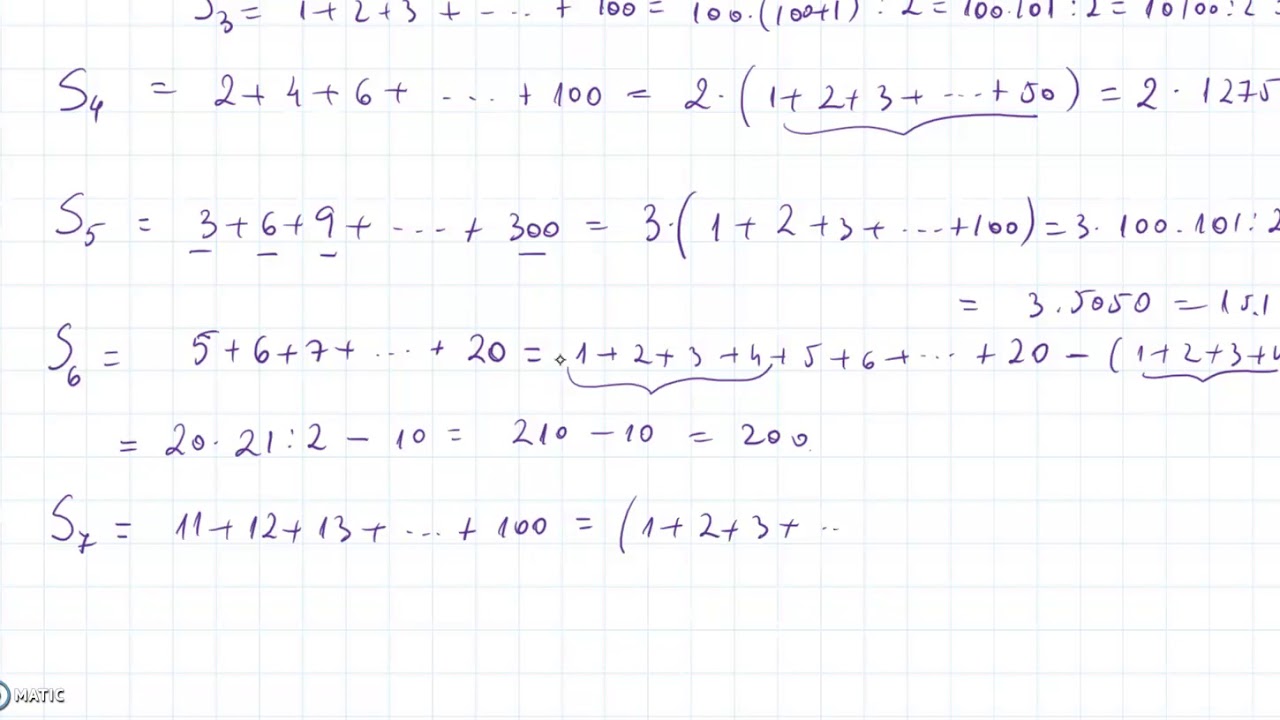 S₃ = 1 + 2 + 3 + - ... + 100 = 100.(100+1) : 2 = 100.101 : 2 = 10100 : 2 =
S₄ = 2 + 4 + 6 + - ... + 100 = 2 . ( 1 + 2 + 3 + - ... + 50 ) = 2 . 1275
S₅ = 3 + 6 + 9 + - ... + 300 = 3 . ( 1 + 2 + 3 + ... + 100 ) = 3 . 100 . 101 : 2
= 3 . 5050 = 15.1
S₆ = 5 + 6 + 7 + ... + 20 = 1 + 2 + 3 + 4 + 5 + 6 + ... + 20 - ( 1 + 2 + 3 + 4
= 20 . 21 : 2 - 10 = 210 - 10 = 200
S₇ = 11 + 12 + 13 + ... + 100 = ( 1 + 2 + 3 + ..
MATIC